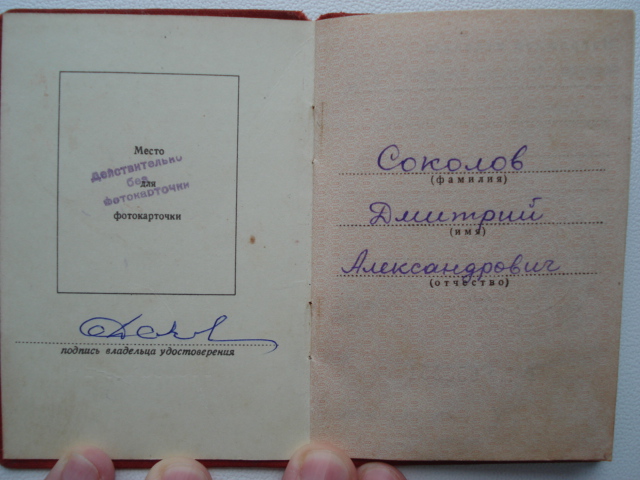 Место
Действительно
без
для
фотокарточки
фотокарточки
подпись владельца удостоверения
Соколов
(фамилия)
Дмитрий
(имя)
Александрович
(отчество)